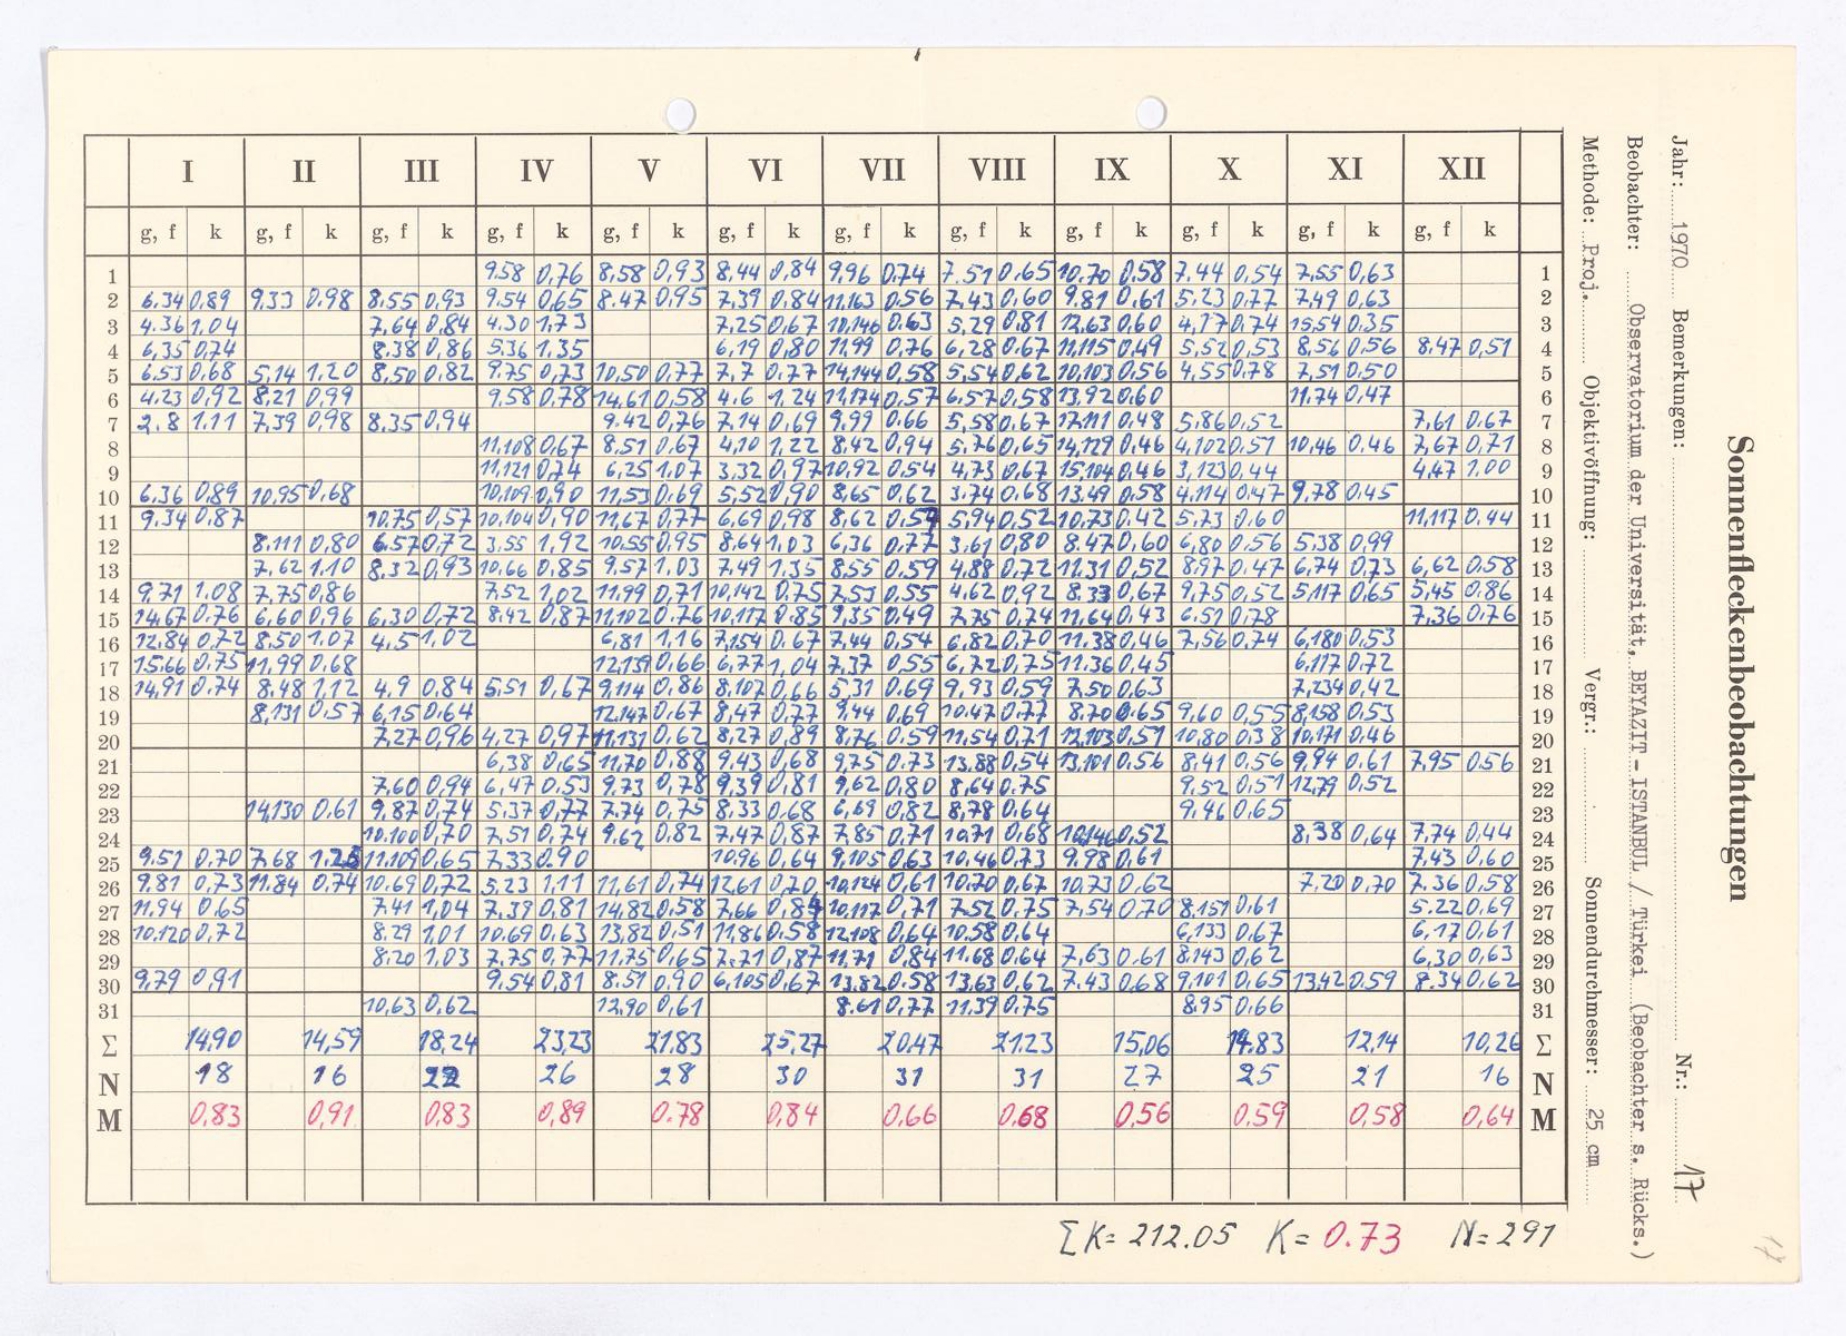 Sonnenfleckenbeobachtungen
Jahr: 1970 Bemerkungen: Nr.: 17
Beobachter: Observatorium der Universität, BEYAZIT - ISTANBUL / Türkei (Beobachter s. Rücks.)
Methode: Proj. Objektivöffnung: Vergr.: Sonnendurchmesser: 25 cm
I II III IV V VI VII VIII IX X XI XII
g, f k g, f k g, f k g, f k g, f k g, f k g, f k g, f k g, f k g, f k g, f k g, f k
1 9.58 0,76 8,58 0,93 8,44 0,84 9,96 0,74 7.51 0.65 10.70 0,58 7.44 0,54 7,55 0,63 1
2 6.34 0,89 9,33 0.98 8,55 0,93 9,54 0,65 8.47 0,95 7,39 0,84 11,163 0,56 7,43 0,60 9.81 0,61 5,23 0,77 7,49 0,63 2
3 4.36 1,04 7,64 0,84 4.30 1,73 7,25 0,67 10,146 0,63 5,29 0,81 12,63 0,60 4,17 0,74 15,54 0,35 3
4 6,35 0,74 8.38 0,86 5.36 1,35 6,19 0,80 11,99 0,76 6,28 0.67 11,115 0,49 5,52 0,53 8,56 0,56 8,47 0,51 4
5 6.53 0,68 5,14 1.20 8,50 0,82 9.75 0,73 10,50 0,77 7,7 0,77 14,144 0,58 5,54 0,62 10,103 0,56 4,55 0,78 7,51 0,50 5
6 4.23 0,92 8,21 0,99 9,58 0,78 14,61 0,58 4.6 1.24 11,174 0,57 6,57 0,58 13,92 0,60 11.74 0,47 6
7 2.8 1.11 7,39 0,98 8.35 0,94 9.42 0,76 7,14 0,69 9,99 0.66 5,58 0,67 12,111 0,48 5,86 0,52 7,61 0.67 7
8 11,108 0,67 8,51 0,67 4,10 1,22 8,42 0,94 5,76 0,65 14,129 0,46 4,102 0,51 10,46 0,46 7,67 0,71 8
9 11,121 0,74 6,25 1,07 3,32 0,97 10,92 0,54 4,73 0,67 15,104 0,46 3,123 0,44 4,47 1,00 9
10 6,36 0,89 10,95 0,68 10,109 0,90 11,53 0,69 5,52 0,90 8,65 0,62 3.74 0,68 13.49 0,58 4,114 0,47 9,78 0,45 10
11 9.34 0,87 10.75 0,57 10,104 0,90 11,67 0,77 6,69 0,98 8,62 0,54 5,94 0,52 10,73 0,42 5,73 0,60 11,117 0,44 11
12 8.111 0,80 6.57 0,72 3,55 1,92 10.55 0,95 8,64 1,03 6,36 0,77 3.61 0,80 8.47 0,60 6,80 0,56 5,38 0,99 12
13 7,62 1.10 8,32 0,93 10.66 0,85 9.57 1,03 7,49 1,35 8,55 0,59 4,88 0,72 12.31 0,52 8,97 0,47 6,74 0,73 6,62 0.58 13
14 9.71 1,08 7,75 0,86 7,52 1,02 11,99 0,71 10,142 0,75 7,53 0,55 4,62 0,92 8,33 0,67 9,75 0,52 5,117 0,65 5,45 0,86 14
15 14,67 0,76 6,60 0,96 6,30 0,72 8,42 0,87 11,102 0,76 10,117 0,85 9,35 0,49 7,75 0,74 11,64 0,43 6,51 0,78 7,36 0,76 15
16 12,84 0,72 8,50 1,07 4,5 1,02 6,81 1,16 7,154 0,67 7,44 0,54 6,82 0,70 11.38 0,46 7,56 0,74 6,180 0,53 16
17 15.66 0,75 11,99 0,68 12,139 0,66 6,77 1,04 7,37 0,55 6,72 0,75 11.36 0,45 6,117 0,72 17
18 14,91 0,74 8,48 1,12 4,9 0,84 5,51 0,67 9,114 0,86 8,107 0,66 5,31 0,69 9,93 0,59 7,50 0,63 7,234 0,42 18
19 8,131 0,57 6,15 0,64 12,147 0,67 8,47 0,77 9,44 0,69 10.47 0,77 8.70 0.65 9,60 0,55 8,158 0,53 19
20 7,27 0,96 4,27 0,97 11,131 0,62 8,27 0,89 8,76 0,59 11,54 0,71 12,103 0,51 10,80 0,38 10,171 0,46 20
21 6,38 0,65 11,70 0,88 9,43 0,68 9,75 0.73 13.88 0,54 13,101 0.56 8,41 0,56 9,94 0,61 7,95 0,56 21
22 7,60 0,94 6,47 0,53 9,73 0,78 9,39 0,81 9,62 0,80 8,64 0.75 9,52 0,51 12,79 0,52 22
23 14,130 0.61 9,87 0,74 5,37 0,77 7,74 0,75 8,33 0,68 6,69 0,82 8,78 0,64 9,46 0,65 23
24 10.100 0,70 7,51 0,74 9,62 0,82 7,47 0,87 7,85 0,71 10,71 0,68 10,146 0,52 8,38 0,64 7,74 0,44 24
25 9.51 0,70 7,68 1.25 11,109 0,65 7,33 0.90 10,96 0,64 9,105 0,63 10,46 0,73 9,98 0,61 7,43 0,60 25
26 9.81 0,73 11.84 0,74 10.69 0,72 5,23 1,11 11,61 0,74 12,61 0,70 10,124 0,61 10,70 0,67 10,73 0,62 7,20 0,70 7.36 0,58 26
27 11.94 0.65 7.41 1,04 7,39 0,81 14,82 0.58 7,66 0,84 10,117 0,71 7,52 0,75 7,54 0,70 8,151 0,61 5.22 0,69 27
28 10,120 0,72 8.29 1,01 10.69 0,63 13,82 0,51 11,86 0.58 12,108 0,64 10.58 0,64 6,133 0,67 6,17 0,61 28
29 8,20 1,03 7,75 0,77 11,75 0,65 7,71 0,87 11,71 0,84 11.68 0,64 7,63 0.61 8,143 0,62 6,30 0,63 29
30 9,79 0,91 9,54 0,81 8.51 0,90 6,105 0,67 13,82 0.58 13,63 0,62 7.43 0,68 9,101 0,65 13,42 0,59 8.34 0,62 30
31 10,63 0,62 12,90 0,61 8.61 0,77 11,39 0.75 8,95 0,66 31
Σ 14,90 14,59 18,24 23,23 21,83 25,27 20,47 21,23 15,06 14.83 12,14 10,26 Σ
N 18 16 22 26 28 30 31 31 27 25 21 16 N
M 0,83 0,91 0,83 0,89 0.78 0,84 0,66 0,68 0,56 0,59 0,58 0,64 M
ΣK= 212.05 K= 0.73 N= 291
17